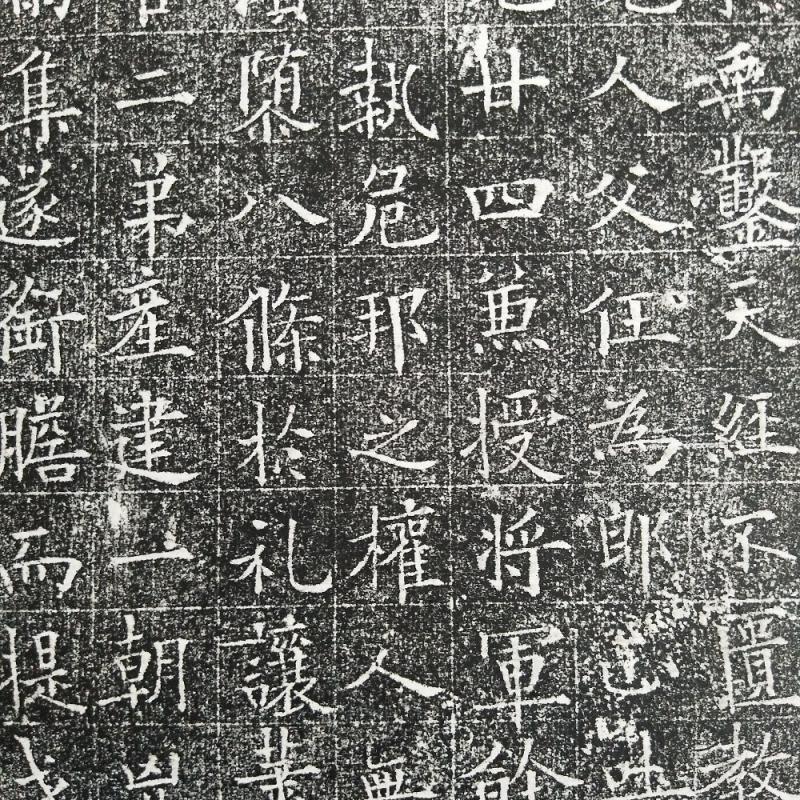 禹鑿天經不匱教
人父任為郎
廿四兼授將軍餘
執危邦之權人無
墮八條於礼讓業
二弟產建一朝
集遂銜膽而提戈